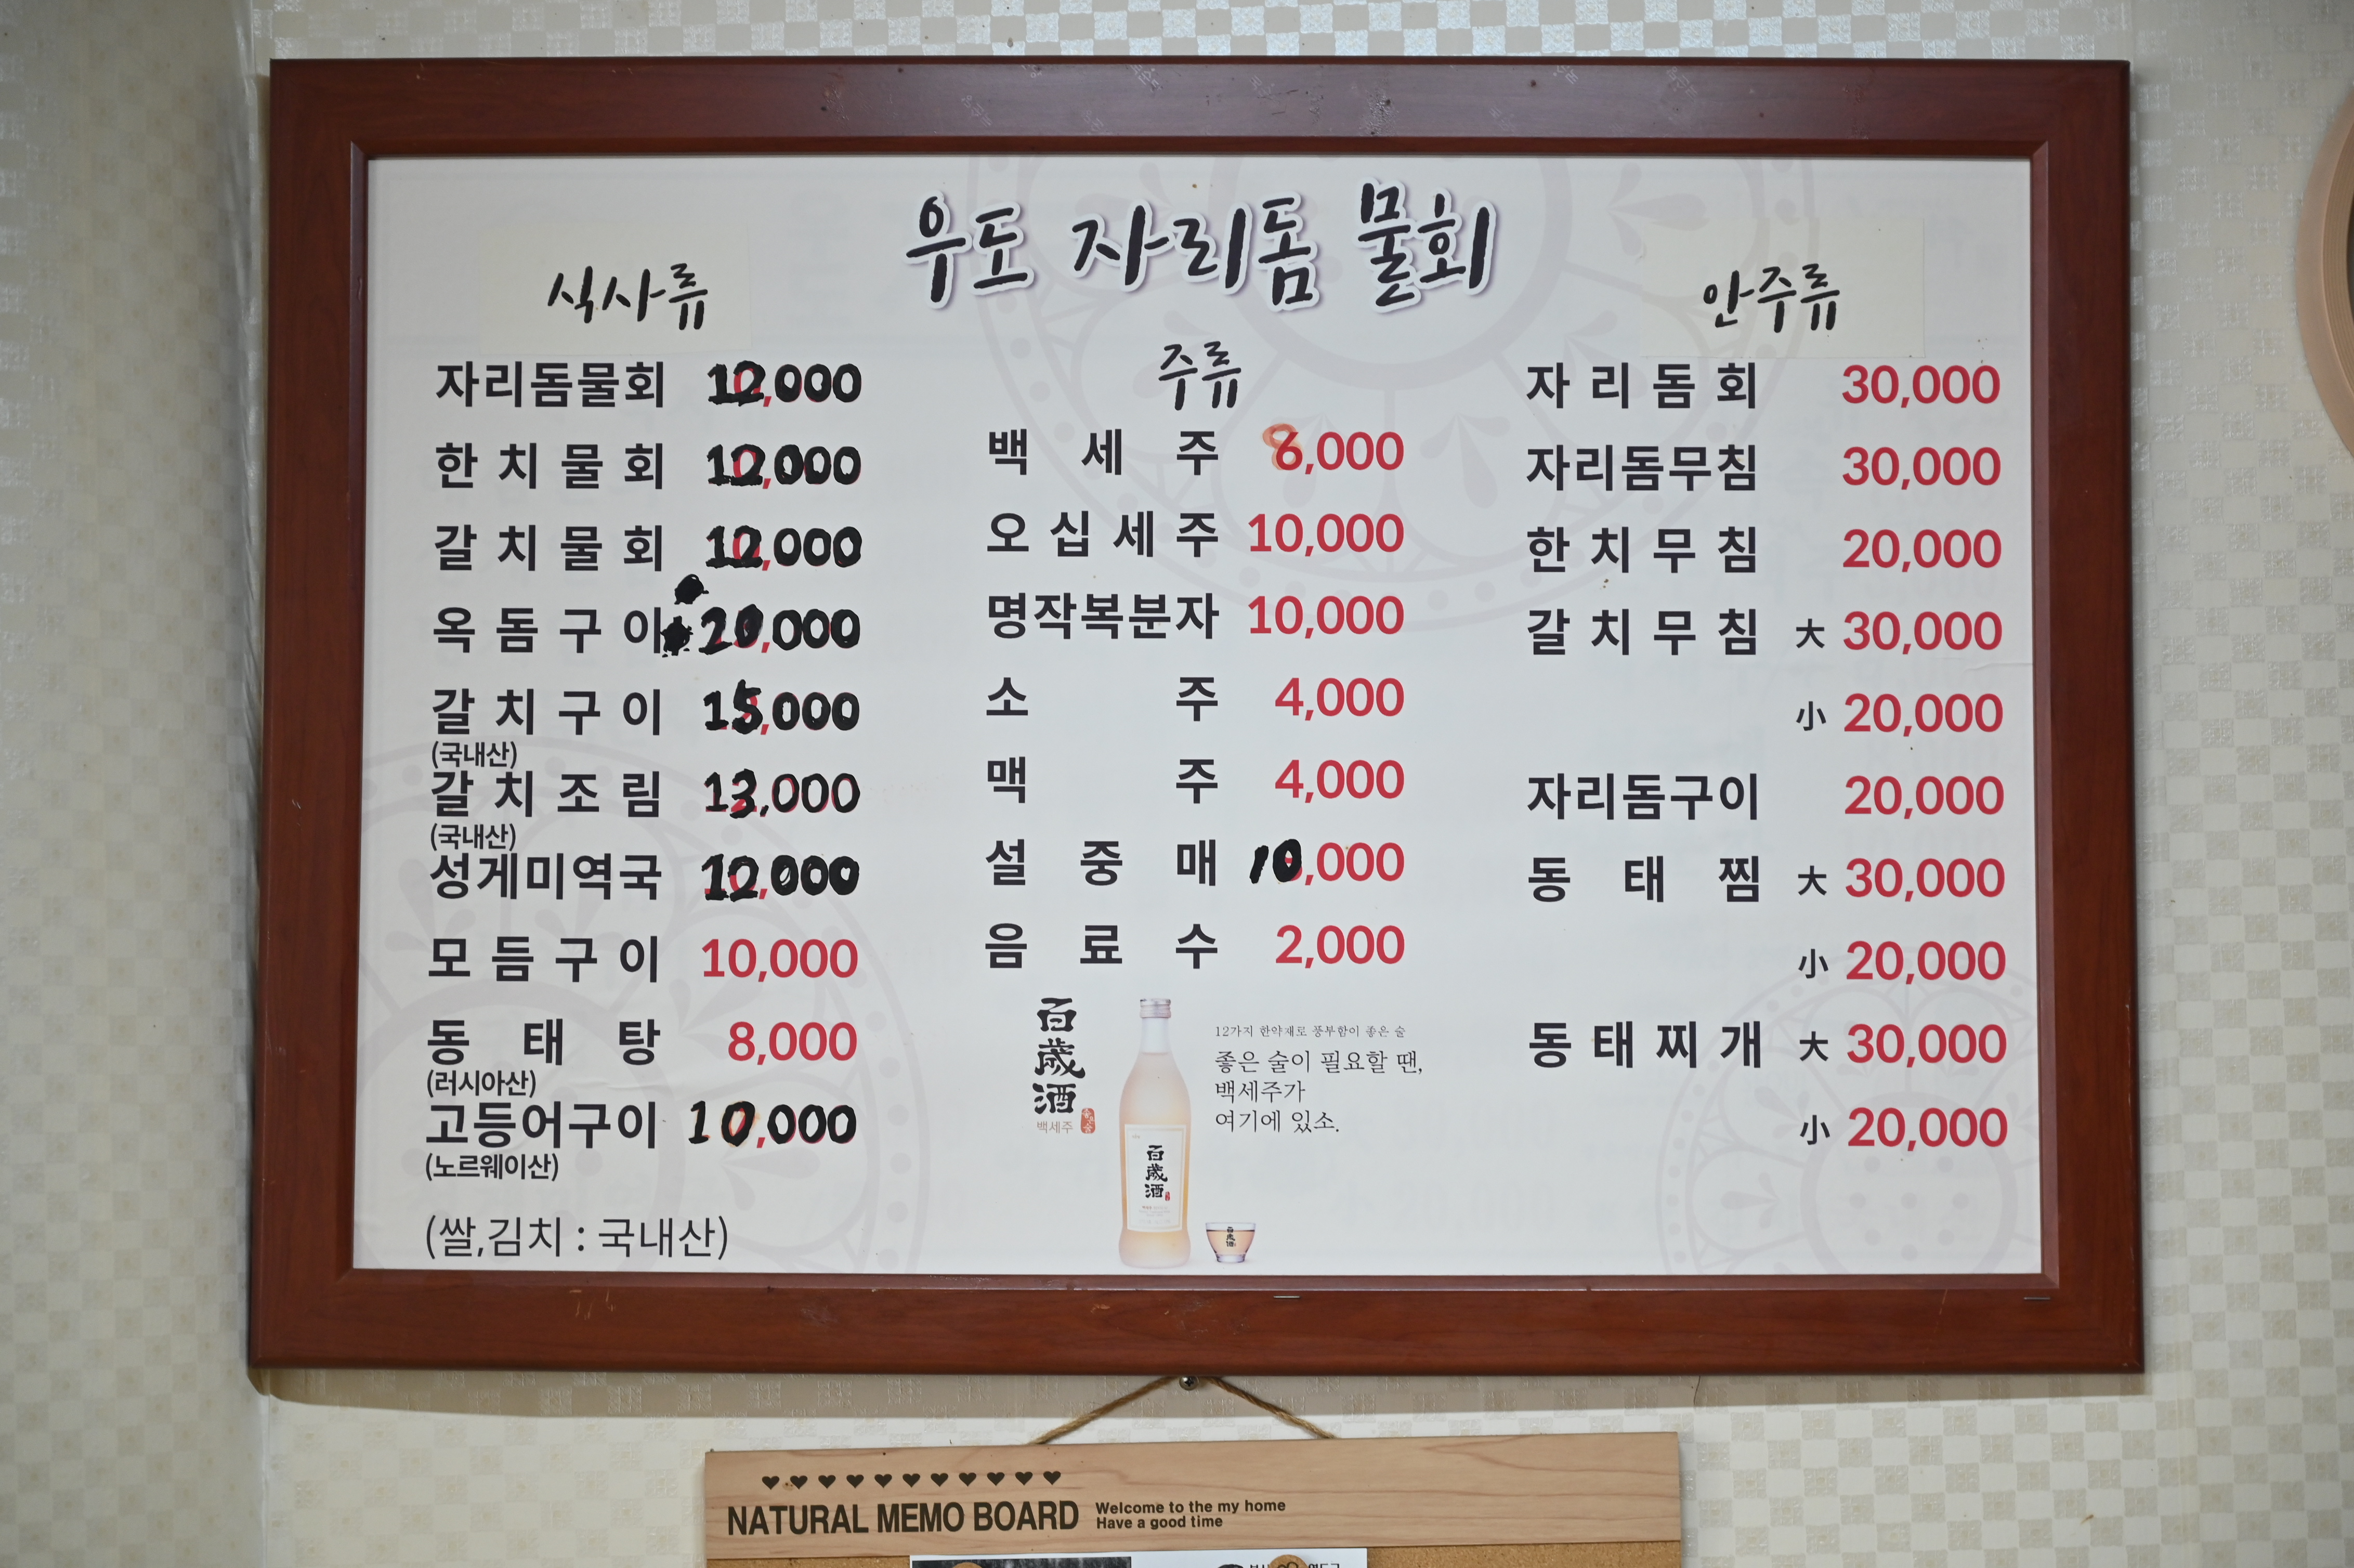 우도 자리돔 물회
식사류
자리돔물회 12,000
한치물회 12,000
갈치물회 12,000
옥돔구이 20,000
갈치구이 15,000
(국내산)
갈치조림 13,000
(국내산)
성게미역국 12,000
모듬구이 10,000
동태탕 8,000
(러시아산)
고등어구이 10,000
(노르웨이산)
(쌀,김치 : 국내산)
주류
백세주 8,000
오십세주 10,000
명작복분자 10,000
소주 4,000
맥주 4,000
설중매 10,000
음료수 2,000
百歲酒
백세주
12가지 한약재로 풍부함이 좋은 술
좋은 술이 필요할 땐,
백세주가
여기에 있소.
百歲酒
안주류
자리돔회 30,000
자리돔무침 30,000
한치무침 20,000
갈치무침 大 30,000
小 20,000
자리돔구이 20,000
동태찜 大 30,000
小 20,000
동태찌개 大 30,000
小 20,000
NATURAL MEMO BOARD
Welcome to the my home
Have a good time